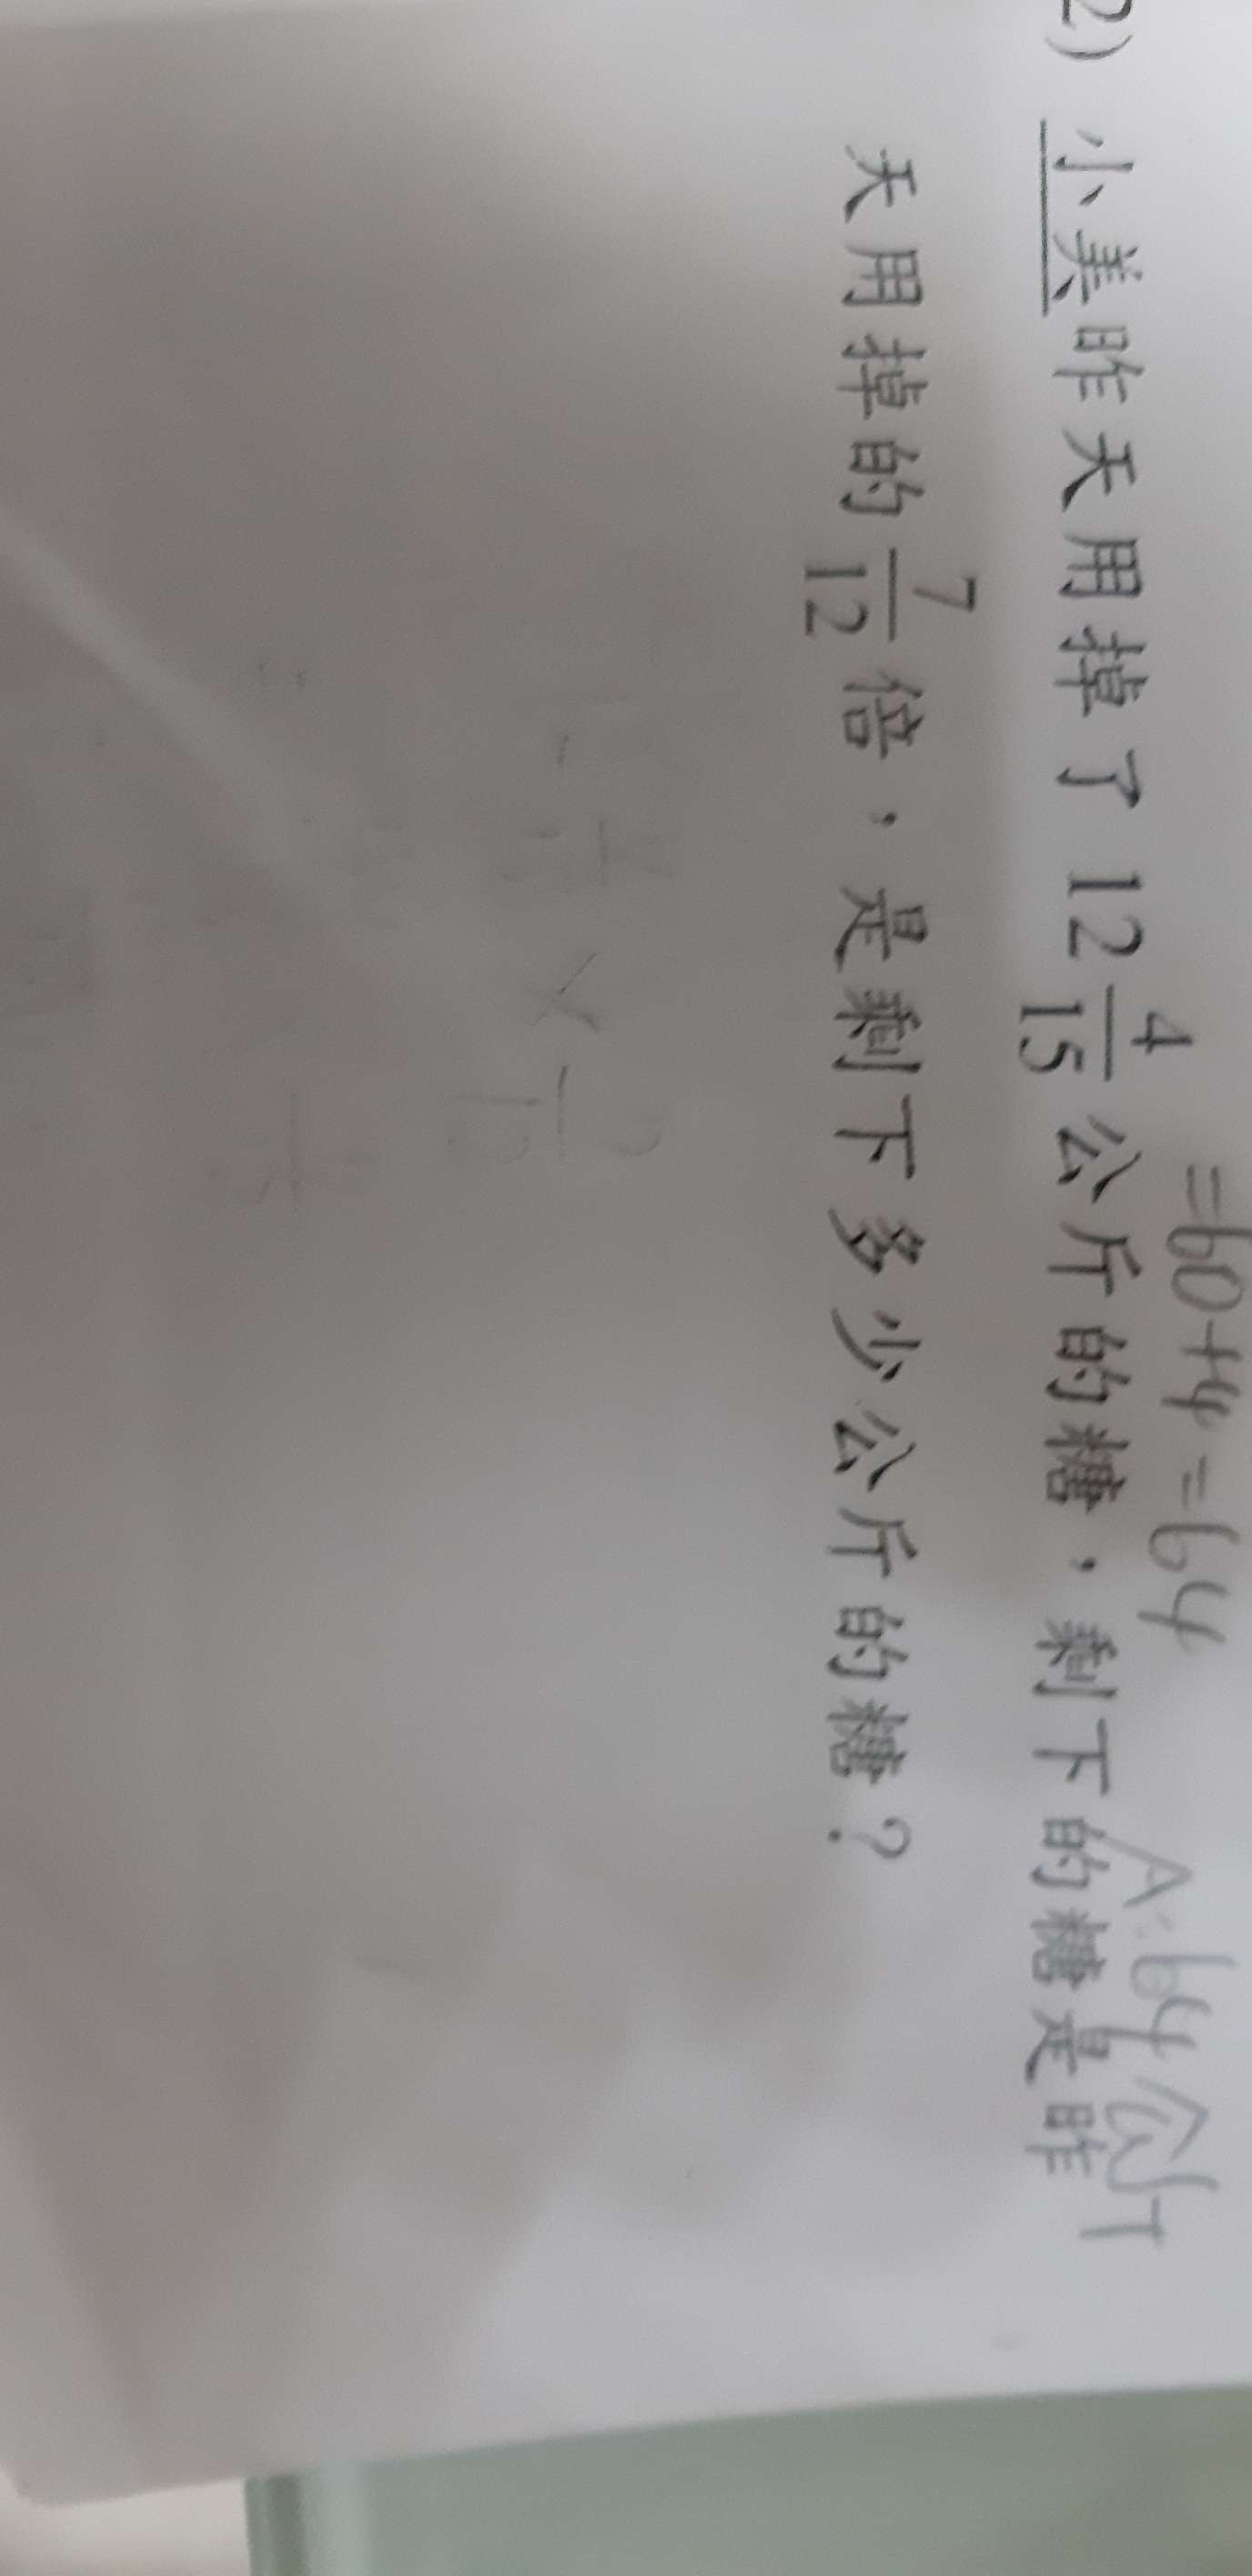 =60+4=64
A:64公斤
2) 小美昨天用掉了 12 4/15 公斤的糖,剩下的糖是昨
天用掉的 7/12 倍,是剩下多少公斤的糖?